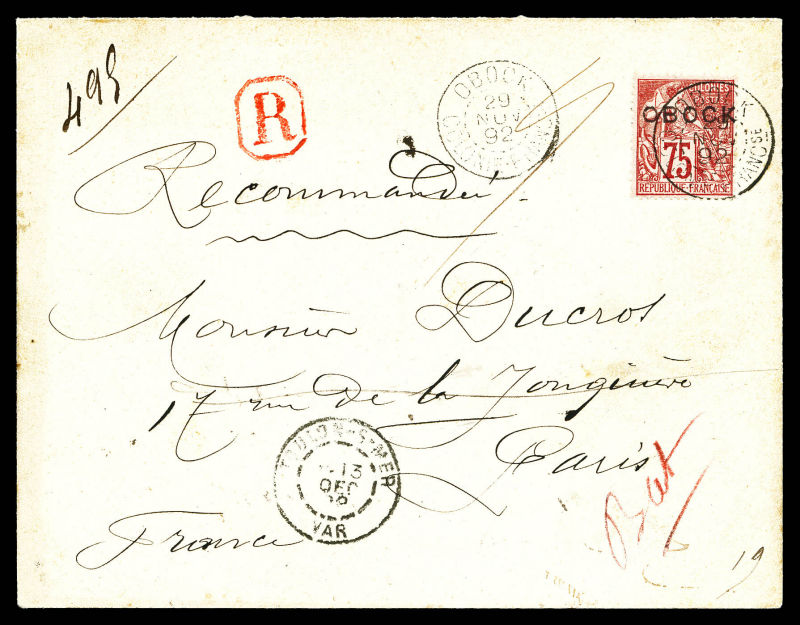 499
R
OBOCK
29
NOV
92
COLONIES
POSTES
OBOCK
75
RÉPUBLIQUE FRANÇAISE
NOV
92
Recommandée
Monsieur Ducros
17 rue de la
Paris
France
TOULON-S-MER
13
DEC
92
VAR
19